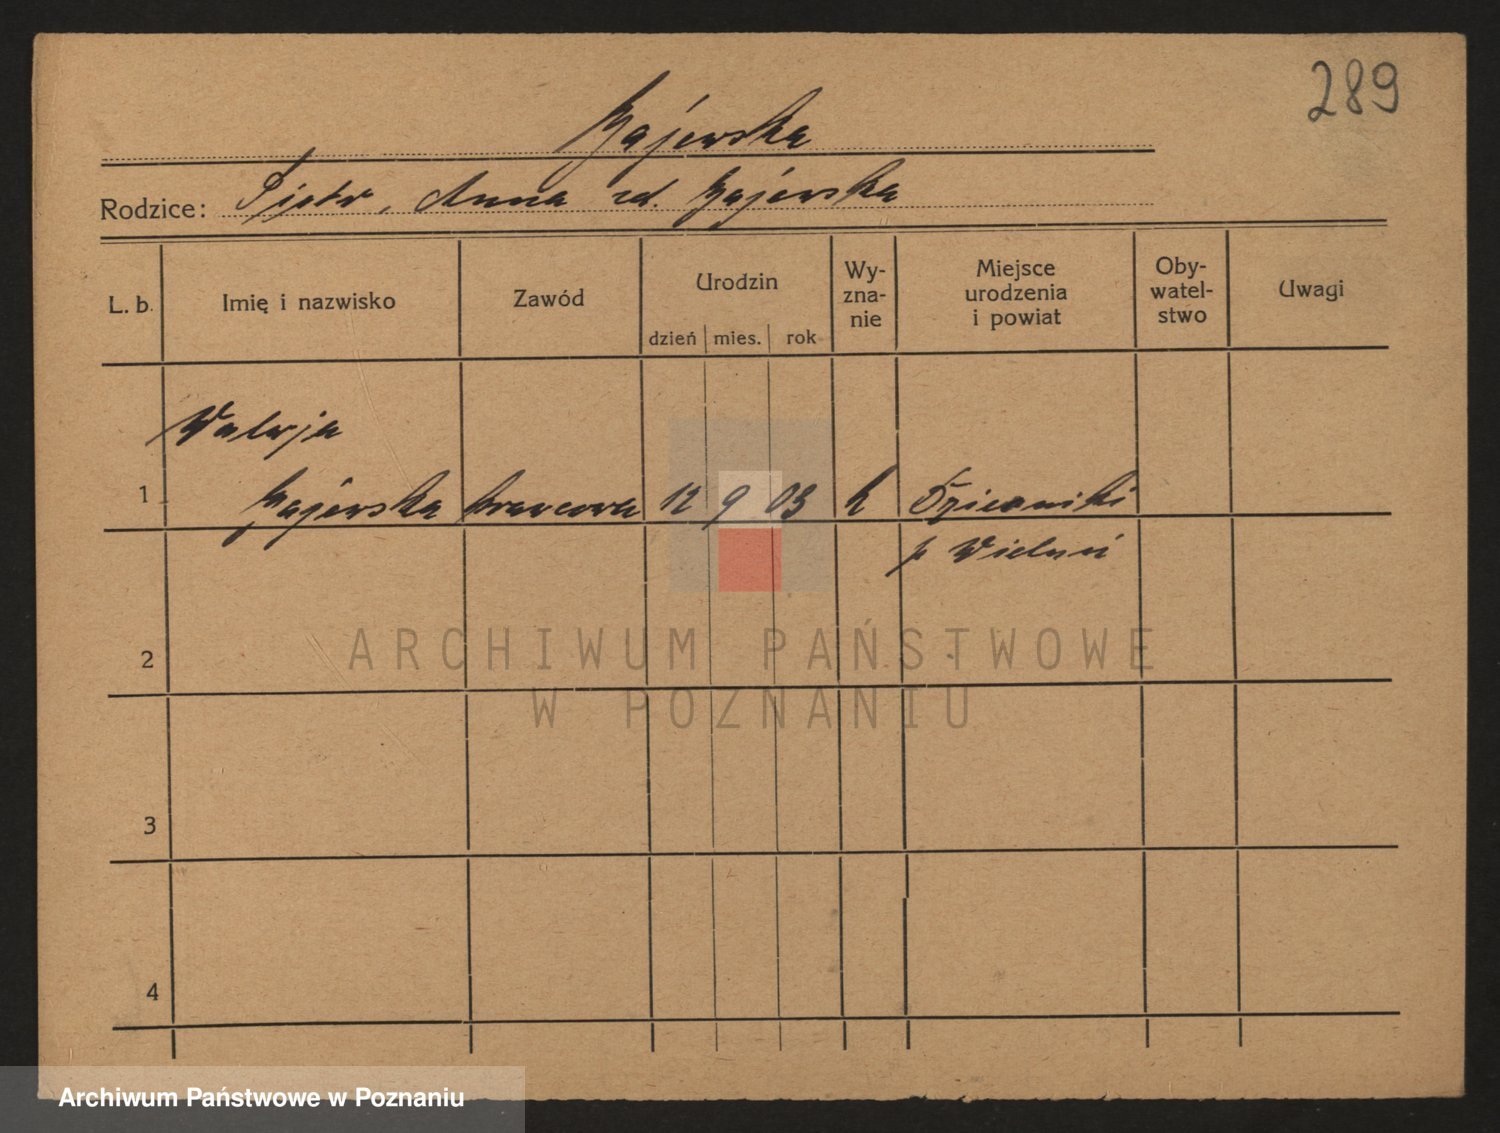 289
Gajewska
Rodzice: Piotr, Anna zd. Gajewska
L. b. Imię i nazwisko Zawód Urodzin dzień mies. rok Wy-zna-nie Miejsce urodzenia i powiat Oby-watel-stwo Uwagi
Walerja
1 Gajewska krawcowa 12 9 03 k
p Wieluń
2
ARCHIWUM PAŃSTWOWE
W POZNANIU
3
4
Archiwum Państwowe w Poznaniu